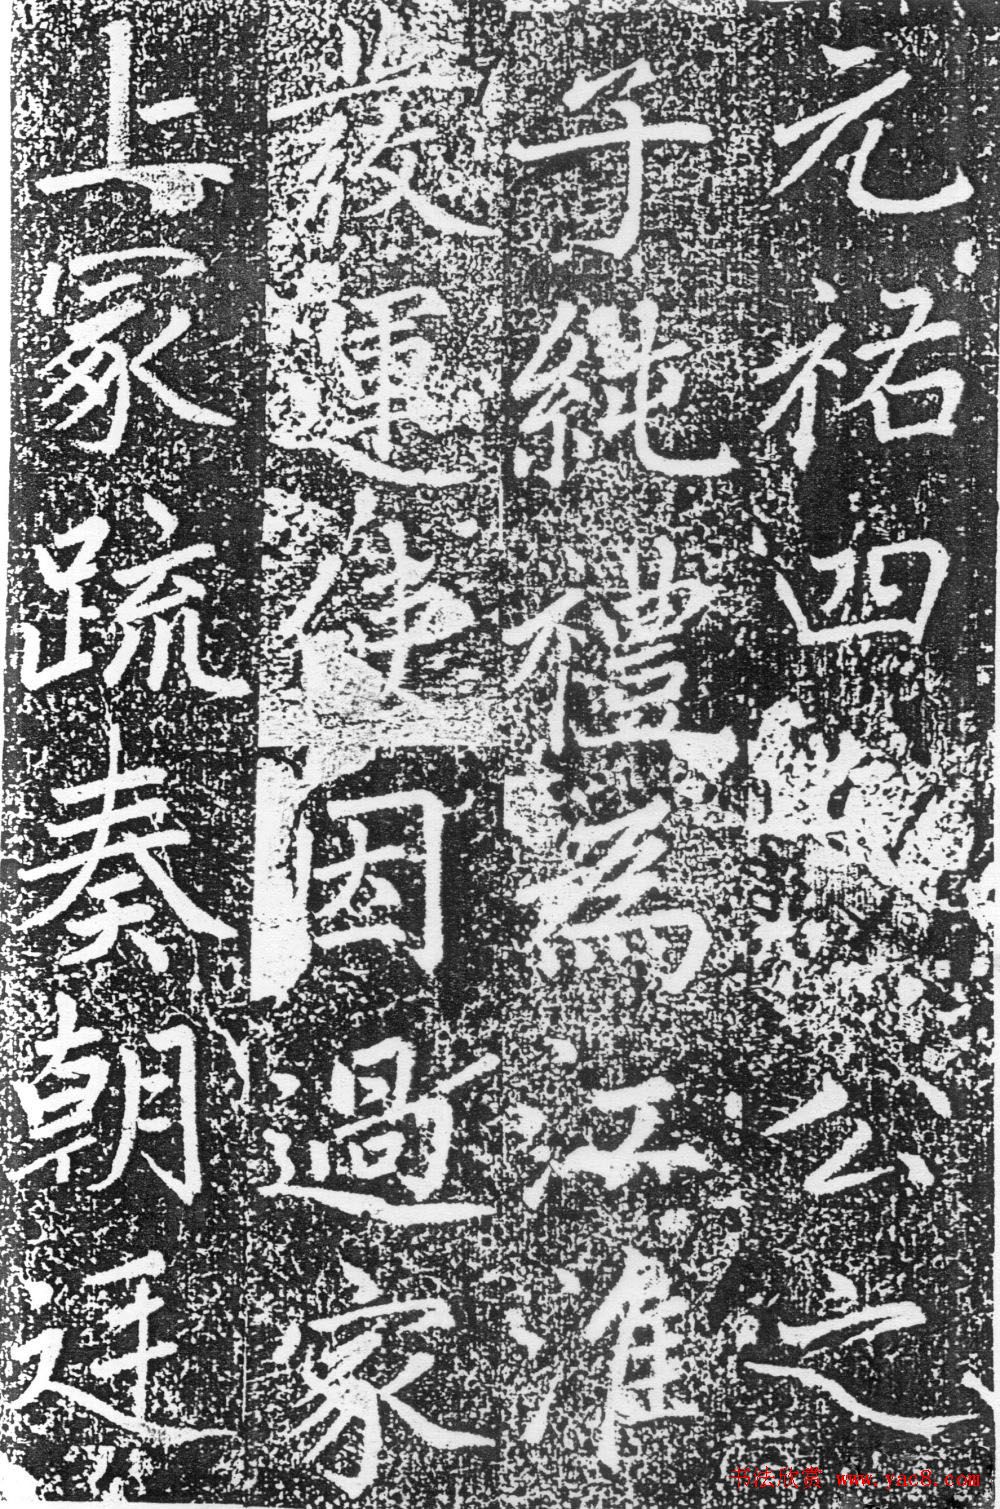 元祐四公之
子純禮為江淮
發運使因過家
上冢疏奏朝廷
书法欣赏 www.yac8.com